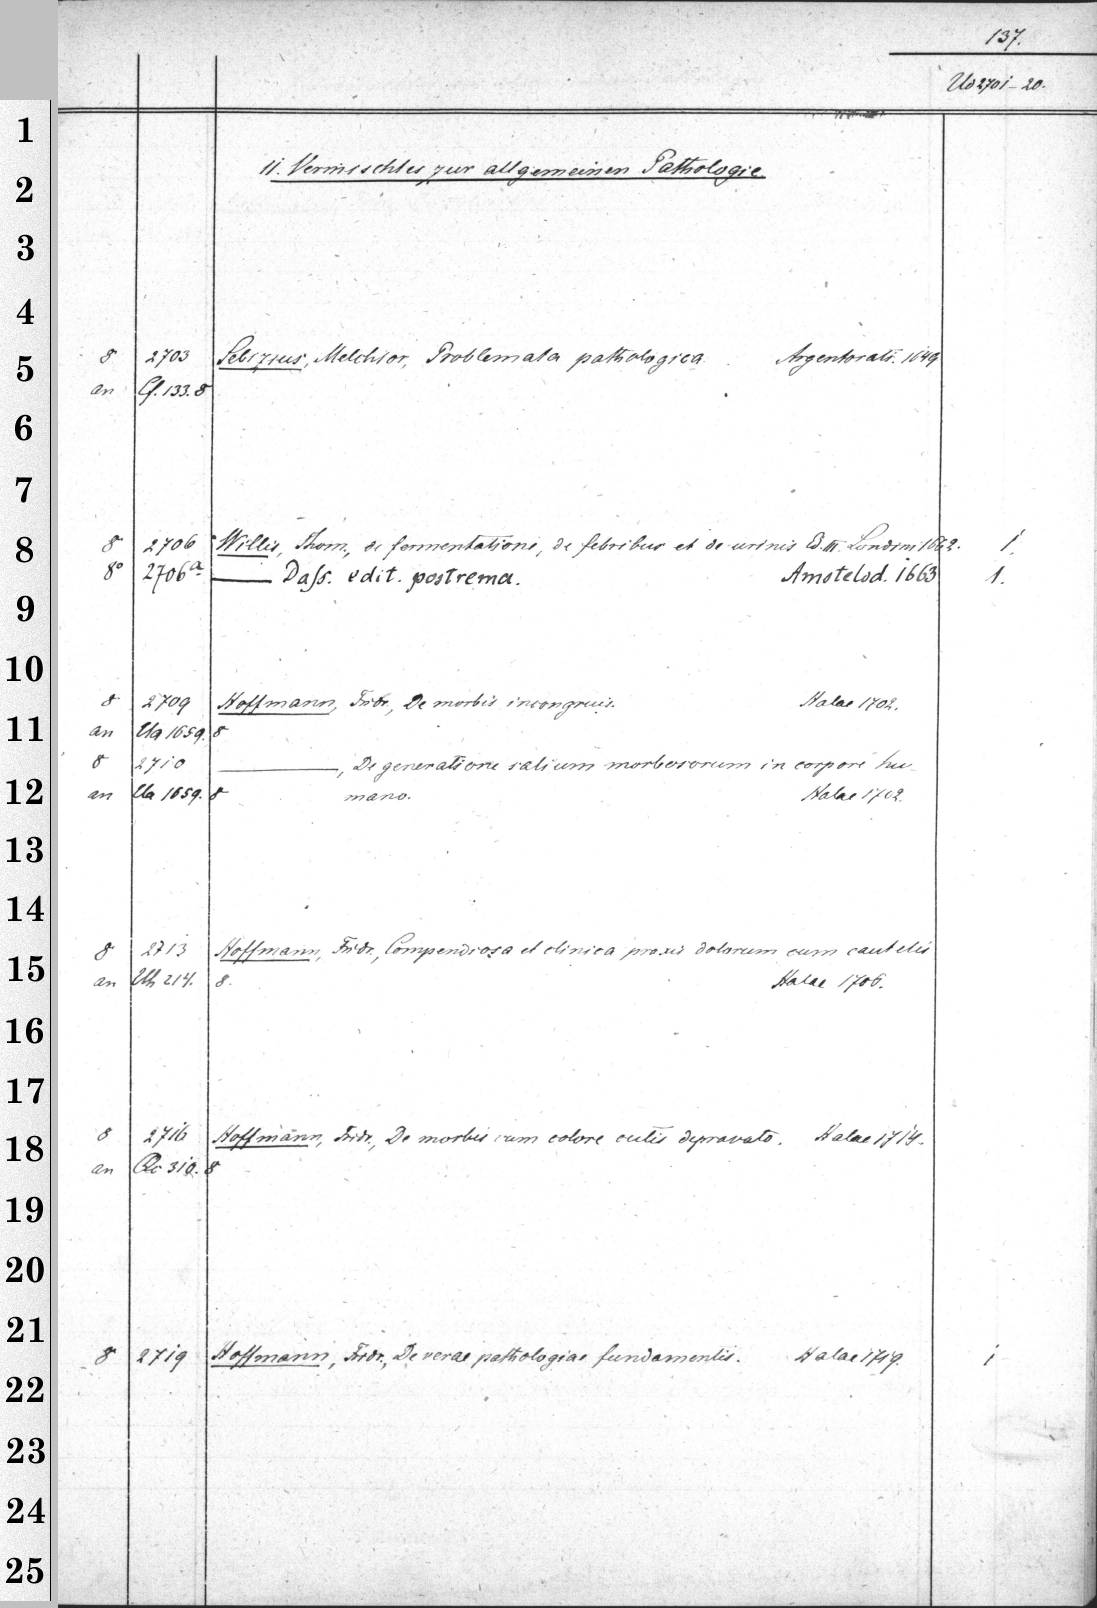 137.
Ud 2701-20.
11. Vermischtes zur allgemeinen Pathologie
8 2703 Sebizius, Melchior, Problemata pathologica. Argentorati. 1649
an Cf. 133. 8
8 2706 Willis, Thom., de fermentatione, de febribus et de urinis Ed. III. Londini 1662. 1.
8° 2706a ——— Dass. edit. postrema. Amstelod. 1663 1.
8 2709 Hoffmann, Fridr., De morbis incongruis. Halae 1702.
an Ua 1659. 8
8 2710 ———, De generatione salium morbosorum in corpore hu-
an Ua 1659. 8 mano. Halae 1702.
8 2713 Hoffmann, Fridr., Compendiosa et clinica praxis dolorum cum cautelis
an Uh 214. 8. Halae 1706.
8 2716 Hoffmann, Fridr., De morbis cum colore cutis depravato. Halae 1714.
an 310. 8
8 2719 Hoffmann, Fridr., De verae pathologiae fundamentis. Halae 1719. 1
1
2
3
4
5
6
7
8
9
10
11
12
13
14
15
16
17
18
19
20
21
22
23
24
25